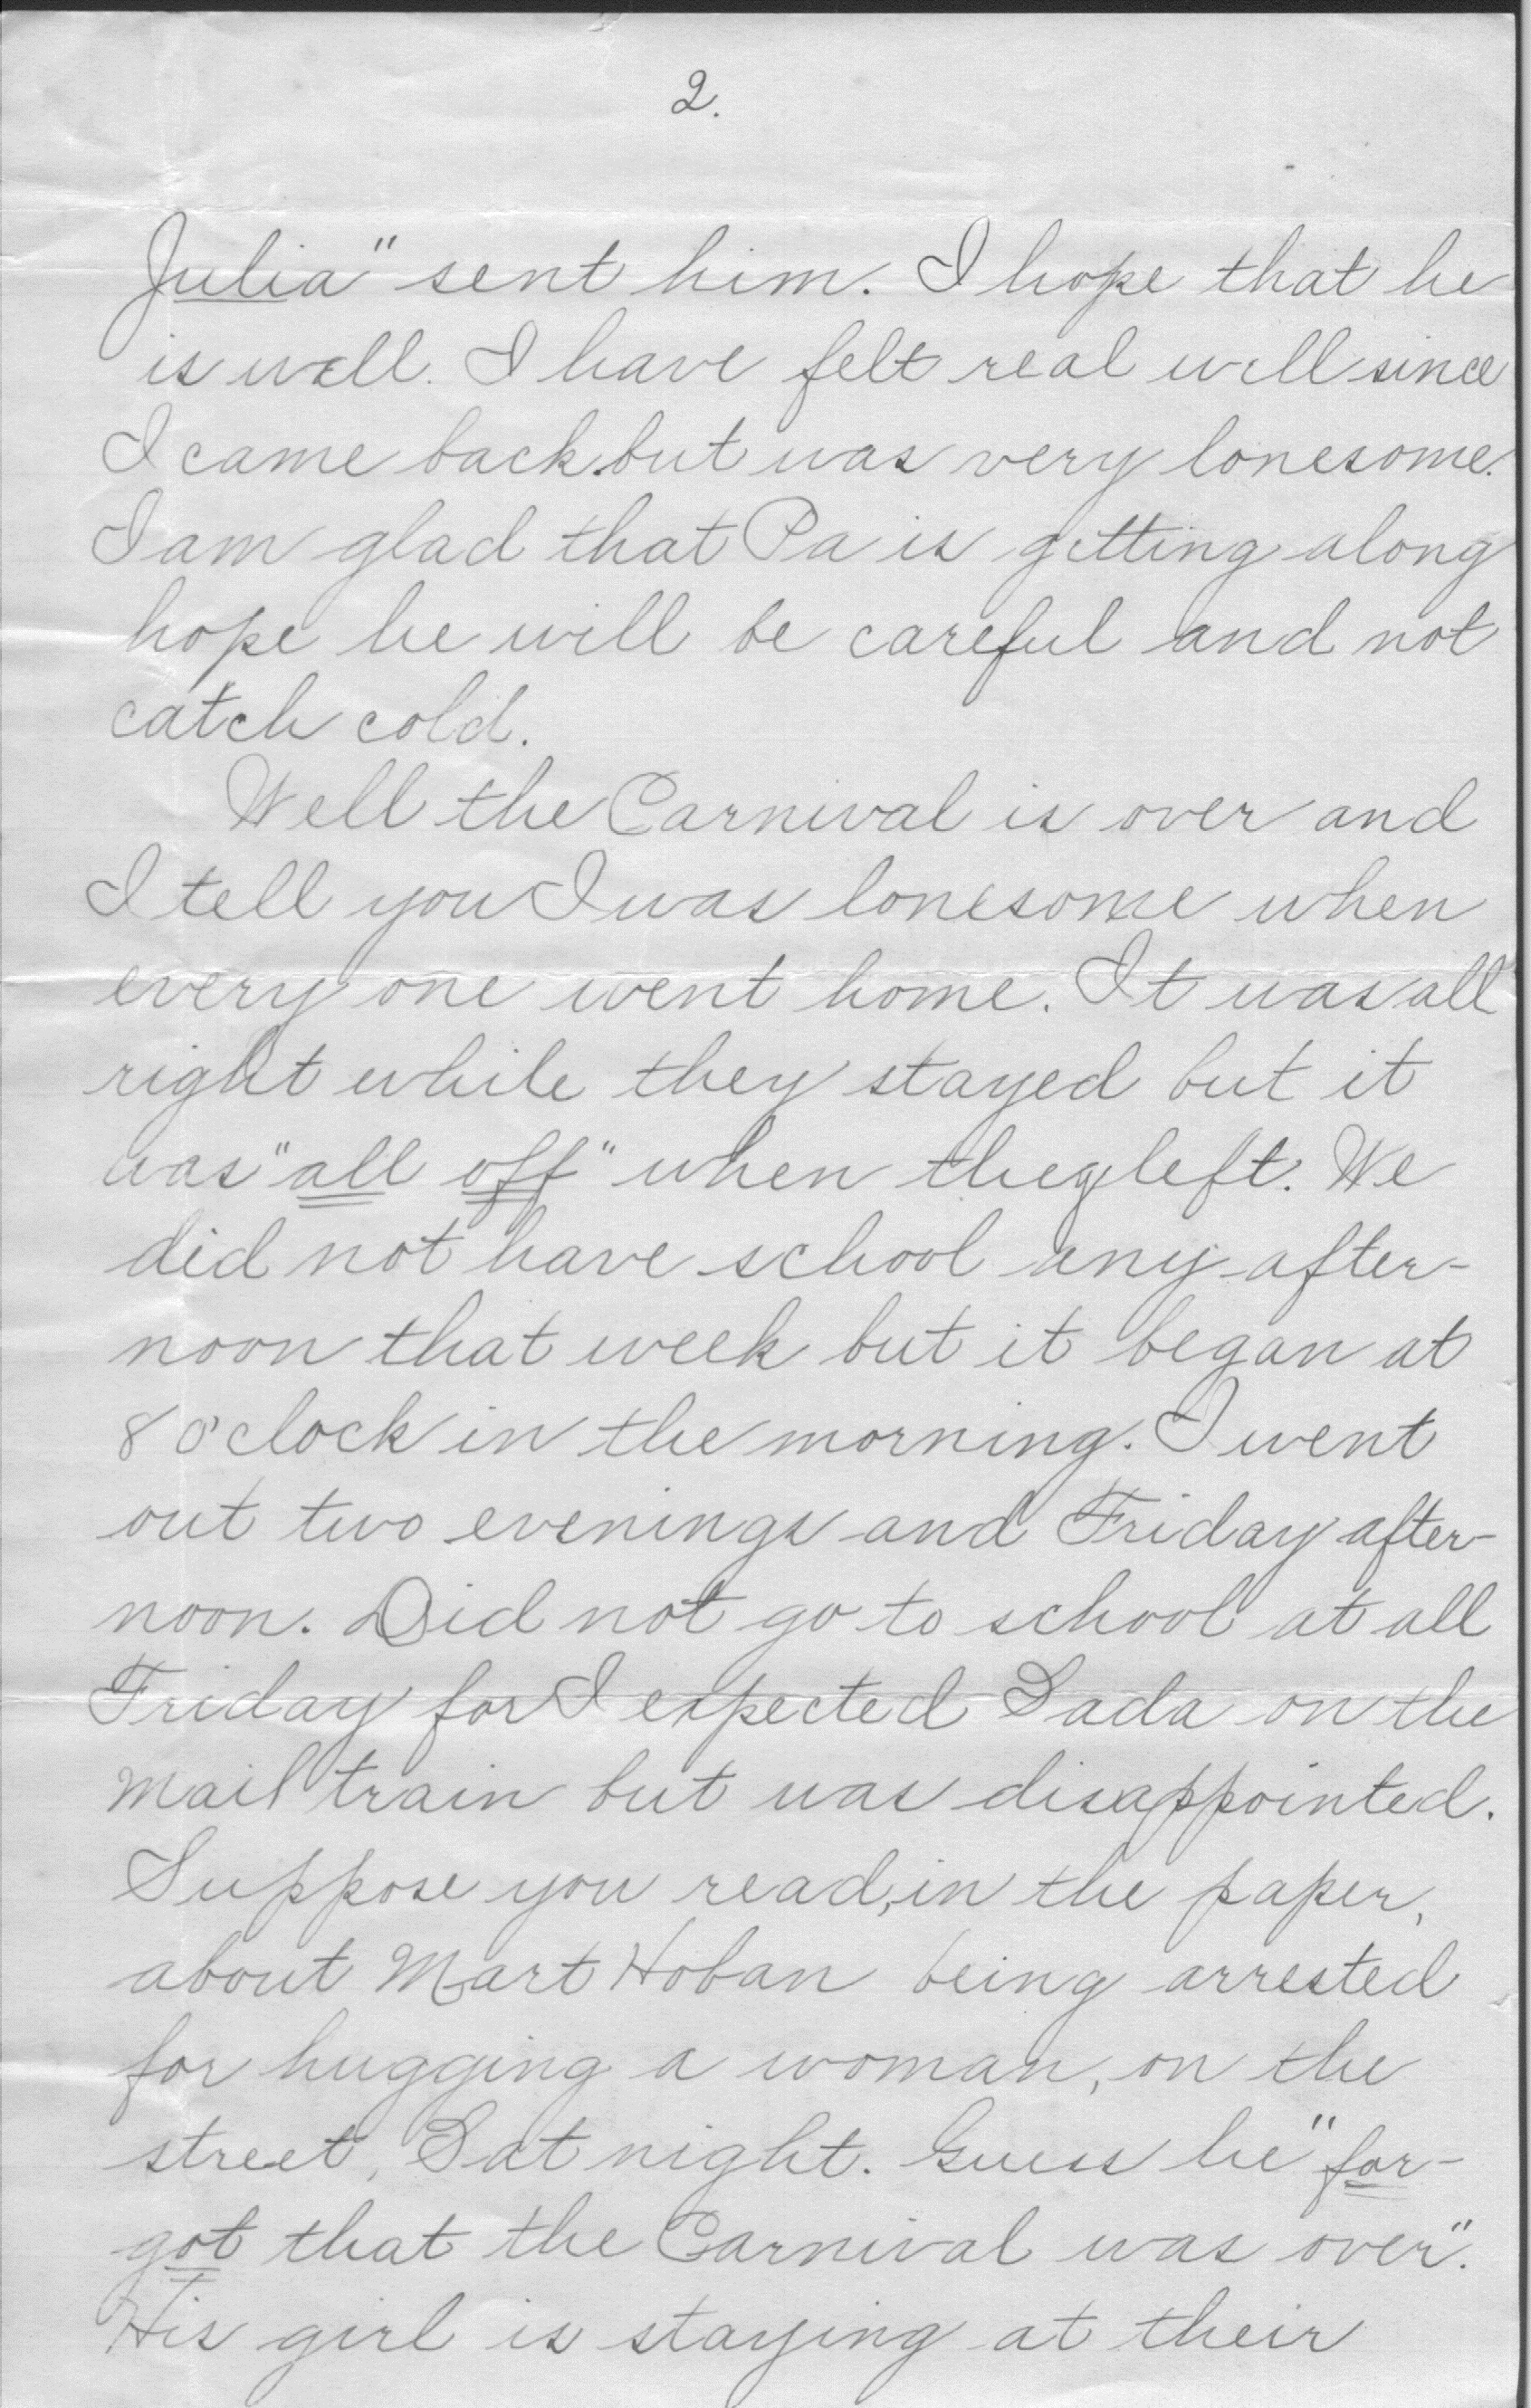 2.
Julia" sent him. I hope that he
is well. I have felt real well since
I came back but was very lonesome.
I am glad that Pa is getting along
hope he will be careful and not
catch cold.
Well the Carnival is over and
I tell you I was lonesome when
every one went home. It was all
right while they stayed but it
was "all off" when they left. We
did not have school any after-
noon that week but it began at
8 o'clock in the morning. I went
out two evenings and Friday after-
noon. Did not go to school at all
Friday for I expected Sada on the
Mail train but was disappointed.
Suppose you read, in the paper,
about Mart Hoban being arrested
for hugging a woman, on the
street, Sat night. Guess he "for-
got that the Carnival was over".
His girl is staying at their